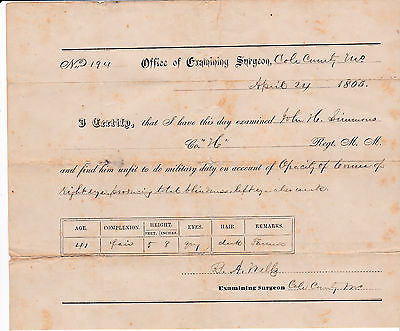 No 194 Office of Examining Surgeon, Cole County Mo
April 24 1865.
I Certify, that I have this day examined John H. Simmons
Co. "H" Regt. M. M.
and find him unfit to do military duty on account of Opacity of cornea of
right eye, producing total blindness, left eye also weak.
AGE. COMPLEXION. HEIGHT. EYES. HAIR. REMARKS.
FEET. INCHES.
41 fair 5 8 gry dark Farmer
D. A. Wells
Examining Surgeon Cole County Mo.